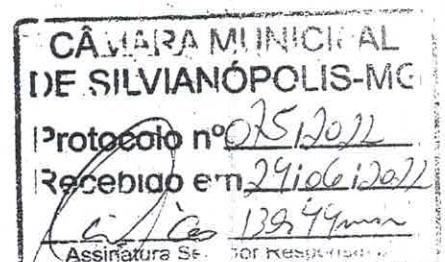 CÂMARA MUNICIPAL
DE SILVIANÓPOLIS-MG
Protocolo nº 075/2022
Recebido em 29/06/2022
13h49min
Assinatura Servidor Responsável